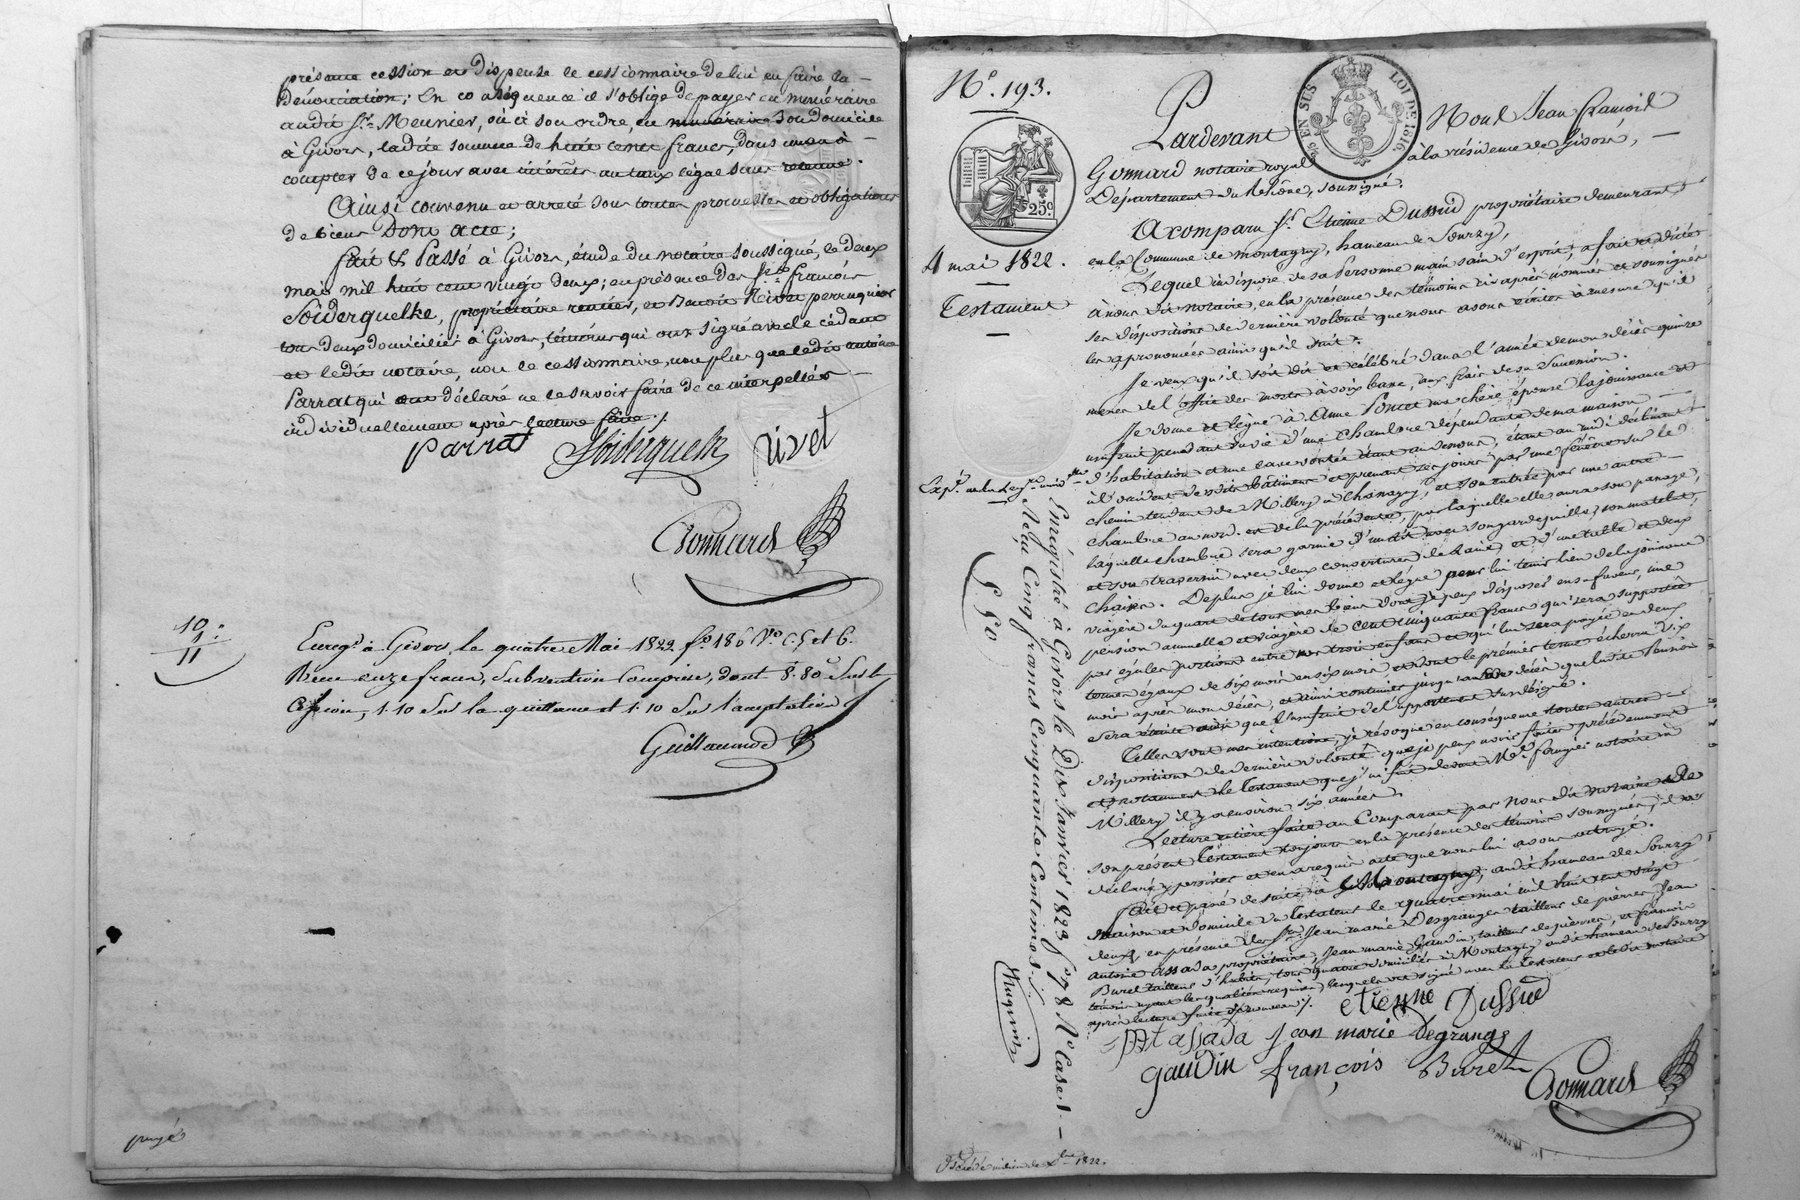 présente cession et dispense le cessionnaire de lui en faire la
Dénonciation; En conséquence il s'oblige de payer en numéraire
audit Sr. Meunier, ou à son ordre, en numéraire son domicile
à Givors, ladite somme de huit cents francs, dans un an à
compter de ce jour avec intérêts au taux légal sans retenue.
Ainsi convenu et arrêté sous toutes promesses et obligations
de biens Dont acte;
fait & Passé à Givors, étude du notaire soussigné, le deux
mai mil huit cent vingt deux; en présence des Srs. françois
Soiderquelke, propriétaire rentier, et Benoit Rivet perruquier
tous deux domiciliés à Givors, témoins qui ont signé avec le cédant
et ledit notaire, non le cessionnaire, non plus que ledit antoine
Parrat qui ont déclaré ne le savoir faire de ce interpellés
individuellement après lecture faite./.
Parrat Soiderquelk rivet
Gonnard
10 "
1 "
11
Enregé. à Givors, le quatre Mai 1822 fo. 186 Vo. C. 5 et 6.
Recu onze francs, Subvention Comprise, dont 8.80 sur la
Cession, 1.10 sur la quittance et 1.10 sur l'acceptation
Guillaumod
purgé
No. 193.
25 EN SUS
LOI DE 1816
25c
4 mai 1822.
Testament
Pardevant Nous Jean françois
Gonnard notaire royal à la résidence de Givors,
Département du Rhône, soussigné.
A comparu Sr. Etienne Dussud propriétaire demeurant
en la Commune de Montagny, hameau de Sourzy,
Lequel indisposé de sa Personne mais sain d'esprit, a fait et dicté
à nous dit notaire, en la présence des témoins ci-après nommés et soussignés
ses dispositions de dernière volonté que nous avons écrites à mesure qu'il
les a prononcées ainsi qu'il suit:
Je veux qu'il soit dit et célébré dans l'année de mon décès quinze
messes de l'office des morts à voix basse, aux frais de ma succession.
Je donne et lègue à Anne Poncet ma chère épouse la jouissance et
usufruit pendant sa vie d'une chambre dépendante de ma maison
d'habitation et une cave voûtée étant au dessous, étant au midi déclinant
à l'occident desdits bâtiments et prenant ses jours par une fenêtre sur le
chemin tendant de Millery à Chassagny, et son entrée par une autre
chambre au nord est de la précédente, par laquelle elle aura son passage;
laquelle chambre sera garnie d'un lit avec son garde paille, son matelat,
et son traversin avec deux couvertures de laine, et d'une table et deux
chaises. De plus je lui donne et lègue pour lui tenir lieu de la jouissance
viagère du quart de tous mes biens dont je peux disposer en sa faveur, une
pension annuelle et viagère de cent cinquante francs qui sera supportée
par égales portions entre mes trois enfants et qui lui sera payée en deux
termes égaux de six mois en six mois, et dont le premier terme écherra six
mois après mon décès, et ainsi continué jusqu'au décès que ladite Pension
sera éteinte ainsi que l'usufruit de l'appartement sus désigné.
Telles sont mes intentions, je révoque en conséquence toutes autres
dispositions de dernière volonté que je peux avoir faites précédemment
et notamment le Testament que j'ai fait devant Mr. fougier notaire à
Millery il y a environ six années.
Lecture entière faite au Comparant par nous dit notaire de
son présent Testament toujours en la présence des témoins soussignés, il a
déclaré y persister et en a requis acte que nous lui avons octroyé.
fait et passé de suite à Montagny, audit hameau de Sourzy
Maison et domicile du Testateur le quatre mai mil huit cent vingt
deux, en présence des Srs. Jean marie Desgranges tailleur de pierres, Jean
antoine assada propriétaire, Jean marie Gaudin, tailleur de pierres, et françois
Burel tailleur d'habits, tous quatre domiciliés à Montagny audit hameau de Sourzy
témoins ayant les qualités requises, lesquels ont signé avec le Testateur et ledit notaire
après lecture faite de nouveau./.
etienne Dussud
assada Jean marie Degrange
gaudin françois Burel
Gonnard
Enregistré à Givors le Dix Janvier 1823 fo. 78 Ro. Case 1
Reçu Cinq francs Cinquante Centimes
5. 50